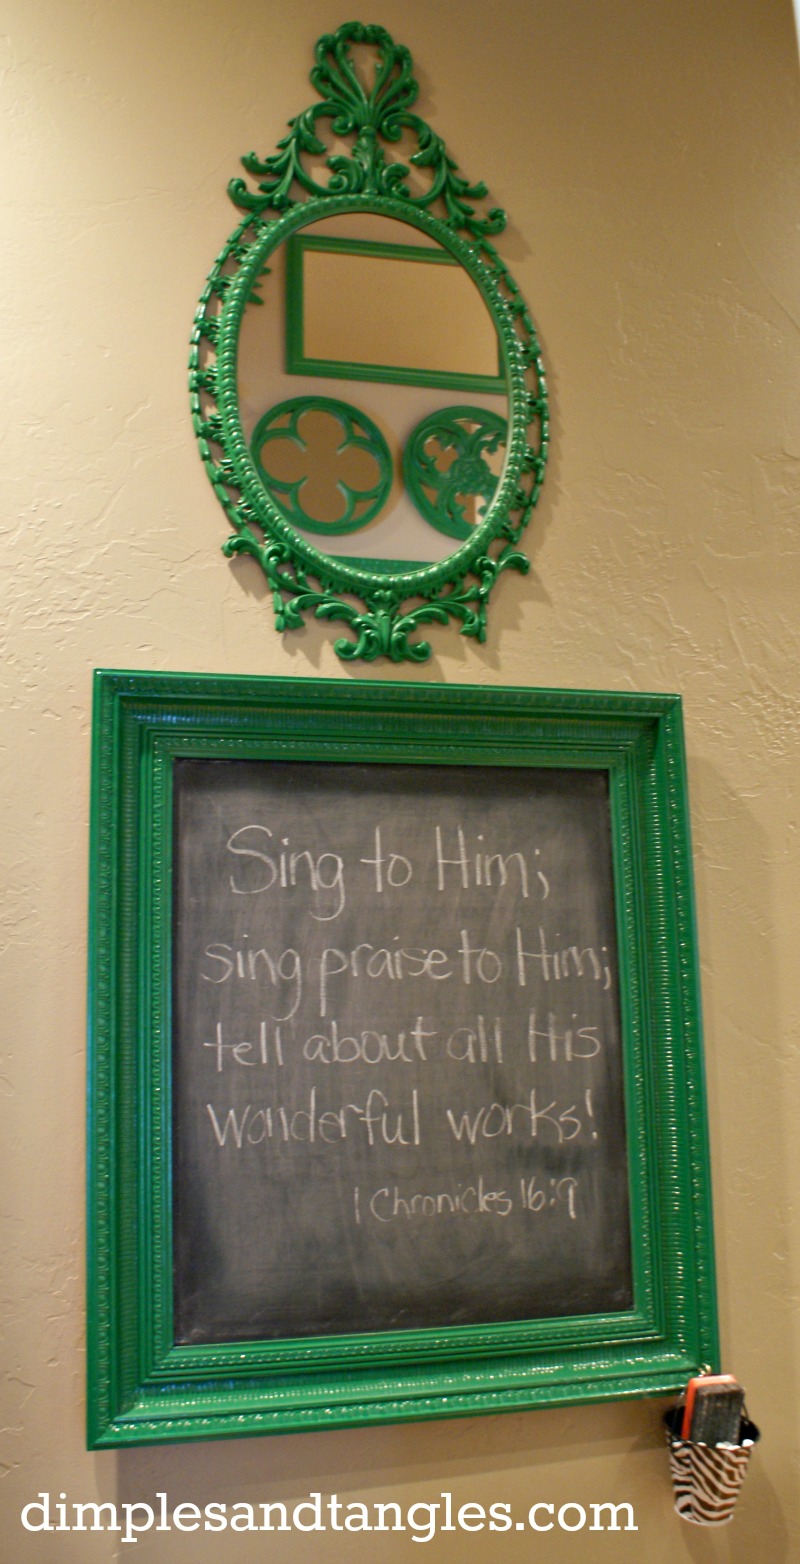 Sing to Him;
sing praise to Him;
tell about all His
wonderful works!
1 Chronicles 16:9
dimplesandtangles.com